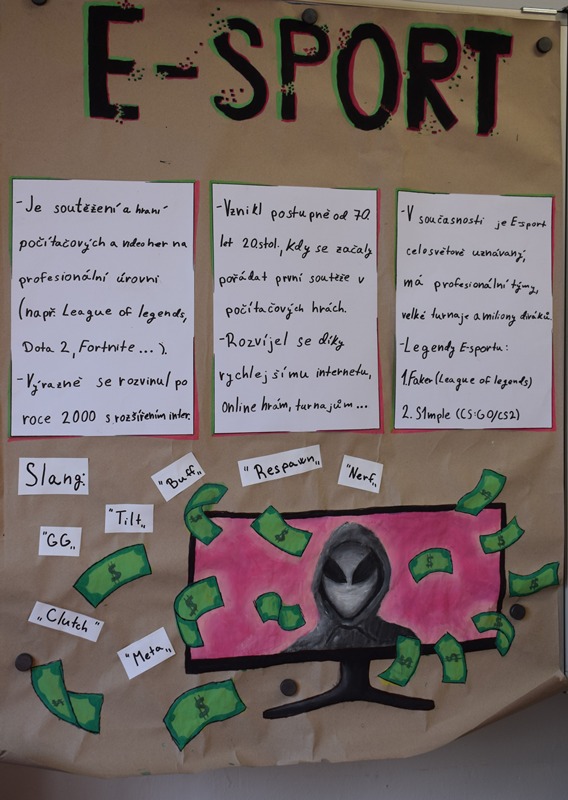 E-SPORT
-Je soutěžení a hraní
počítačových a videoher na
profesionální úrovni
(např. League of legends,
Dota 2, Fortnite ... ).
-Výrazně se rozvinul po
roce 2000 s rozšířením inter.
-Vznikl postupně od 70.
let 20.stol., kdy se začaly
pořádat první soutěže v
počítačových hrách.
-Rozvíjel se díky
rychlejšímu internetu,
online hrám, turnajům ...
-V současnosti je E-sport
celosvětově uznávaný,
má profesionální týmy,
velké turnaje a miliony diváků.
-Legendy E-sportu:
1.Faker (League of legends)
2. S1mple (CS:GO/CS2)
Slang:
"Buff„
"Respawn„
"Nerf„
"Tilt„
"GG„
„Clutch"
"Meta„